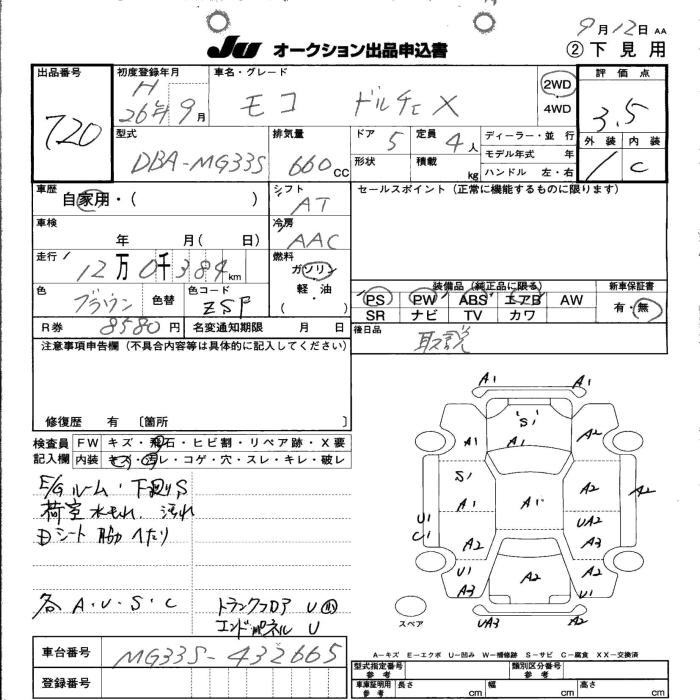 9月12日 AA
JU オークション出品申込書
② 下見用
出品番号
720
初度登録年月
H
26年9月
車名・グレード
モコ ドルチェX
2WD
4WD
評価点
3.5
外装 内装
/ C
型式
DBA-MG33S
排気量
660 CC
ドア 5
定員 4人
形状
積載 kg
ディーラー・並行
モデル年式 年
ハンドル 左・右
車歴
自家用・( )
シフト
AT
セールスポイント(正常に機能するものに限ります)
車検
年 月( 日)
冷房
AAC
走行
12万0千384km
燃料
ガソリン
軽・油
( )
色
ブラウン
色替
色コード
ZSP
装備品(純正品に限る)
PS PW ABS エアB AW
SR ナビ TV カワ
新車保証書
有・無
R券 8580円
名変通知期限 月 日
後日品
取説
注意事項申告欄(不具合内容等は具体的に記入してください)
修復歴 有 〔箇所 〕
検査員
記入欄
FW キズ・飛石・ヒビ割・リペア跡・X要
内装 キズ・汚レ・コゲ・穴・スレ・キレ・破レ
E/Gルーム・下廻りS
荷室 水もれ、汚れ
Dシート へたり
各 A・U・S・C
トランクフロア U
エンドパネル U
A1 A1
S1
A1 A1 A2
S1
A1 A1 A2 A2
U1
C1 UA2
A2 A3
U1 A2 U1
A3
UA3 A2
スペア
A-キズ E-エクボ U-凹み W-補修跡 S-サビ C-腐食 XX-交換済
車台番号
MG33S-432665
登録番号
型式指定番号
参考
類別区分番号
参考
車庫証明用
参考
長さ cm
幅 cm
高さ cm